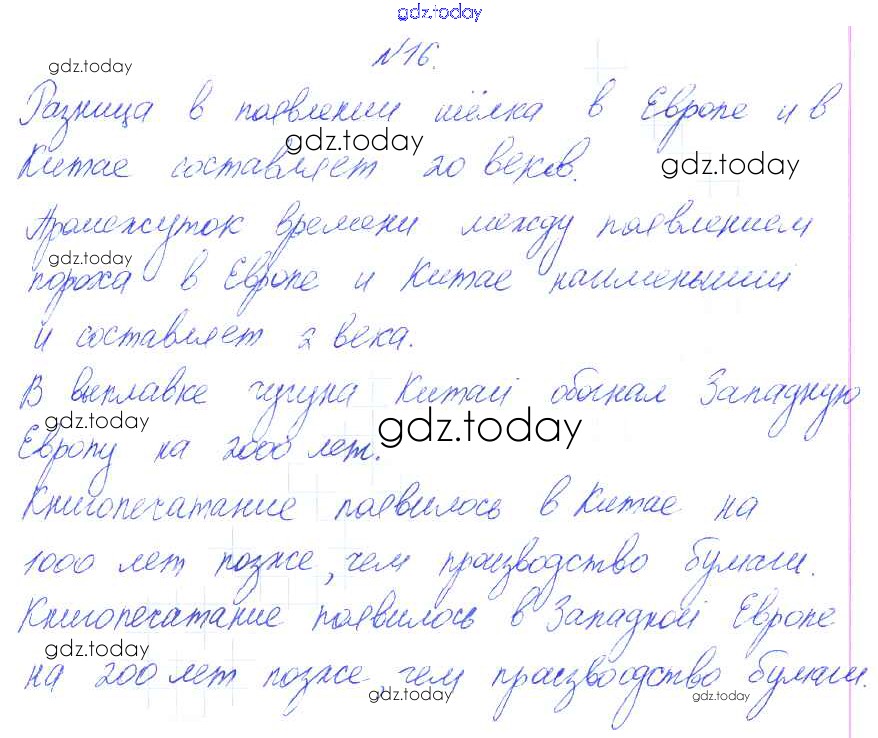 gdz.today
№16.
gdz.today
Разница в появлении шёлка в Европе и в
gdz.today
Китае составляет 20 веков.
gdz.today
Промежуток времени между появлением
gdz.today
пороха в Европе и Китае наименьший
и составляет 2 века.
В выплавке чугуна Китай обогнал Западную
gdz.today
gdz.today
Европу на 2000 лет.
Книгопечатание появилось в Китае на
1000 лет позже, чем производство бумаги.
Книгопечатание появилось в Западной Европе
gdz.today
на 200 лет позже, чем производство бумаги.
gdz.today
gdz.today